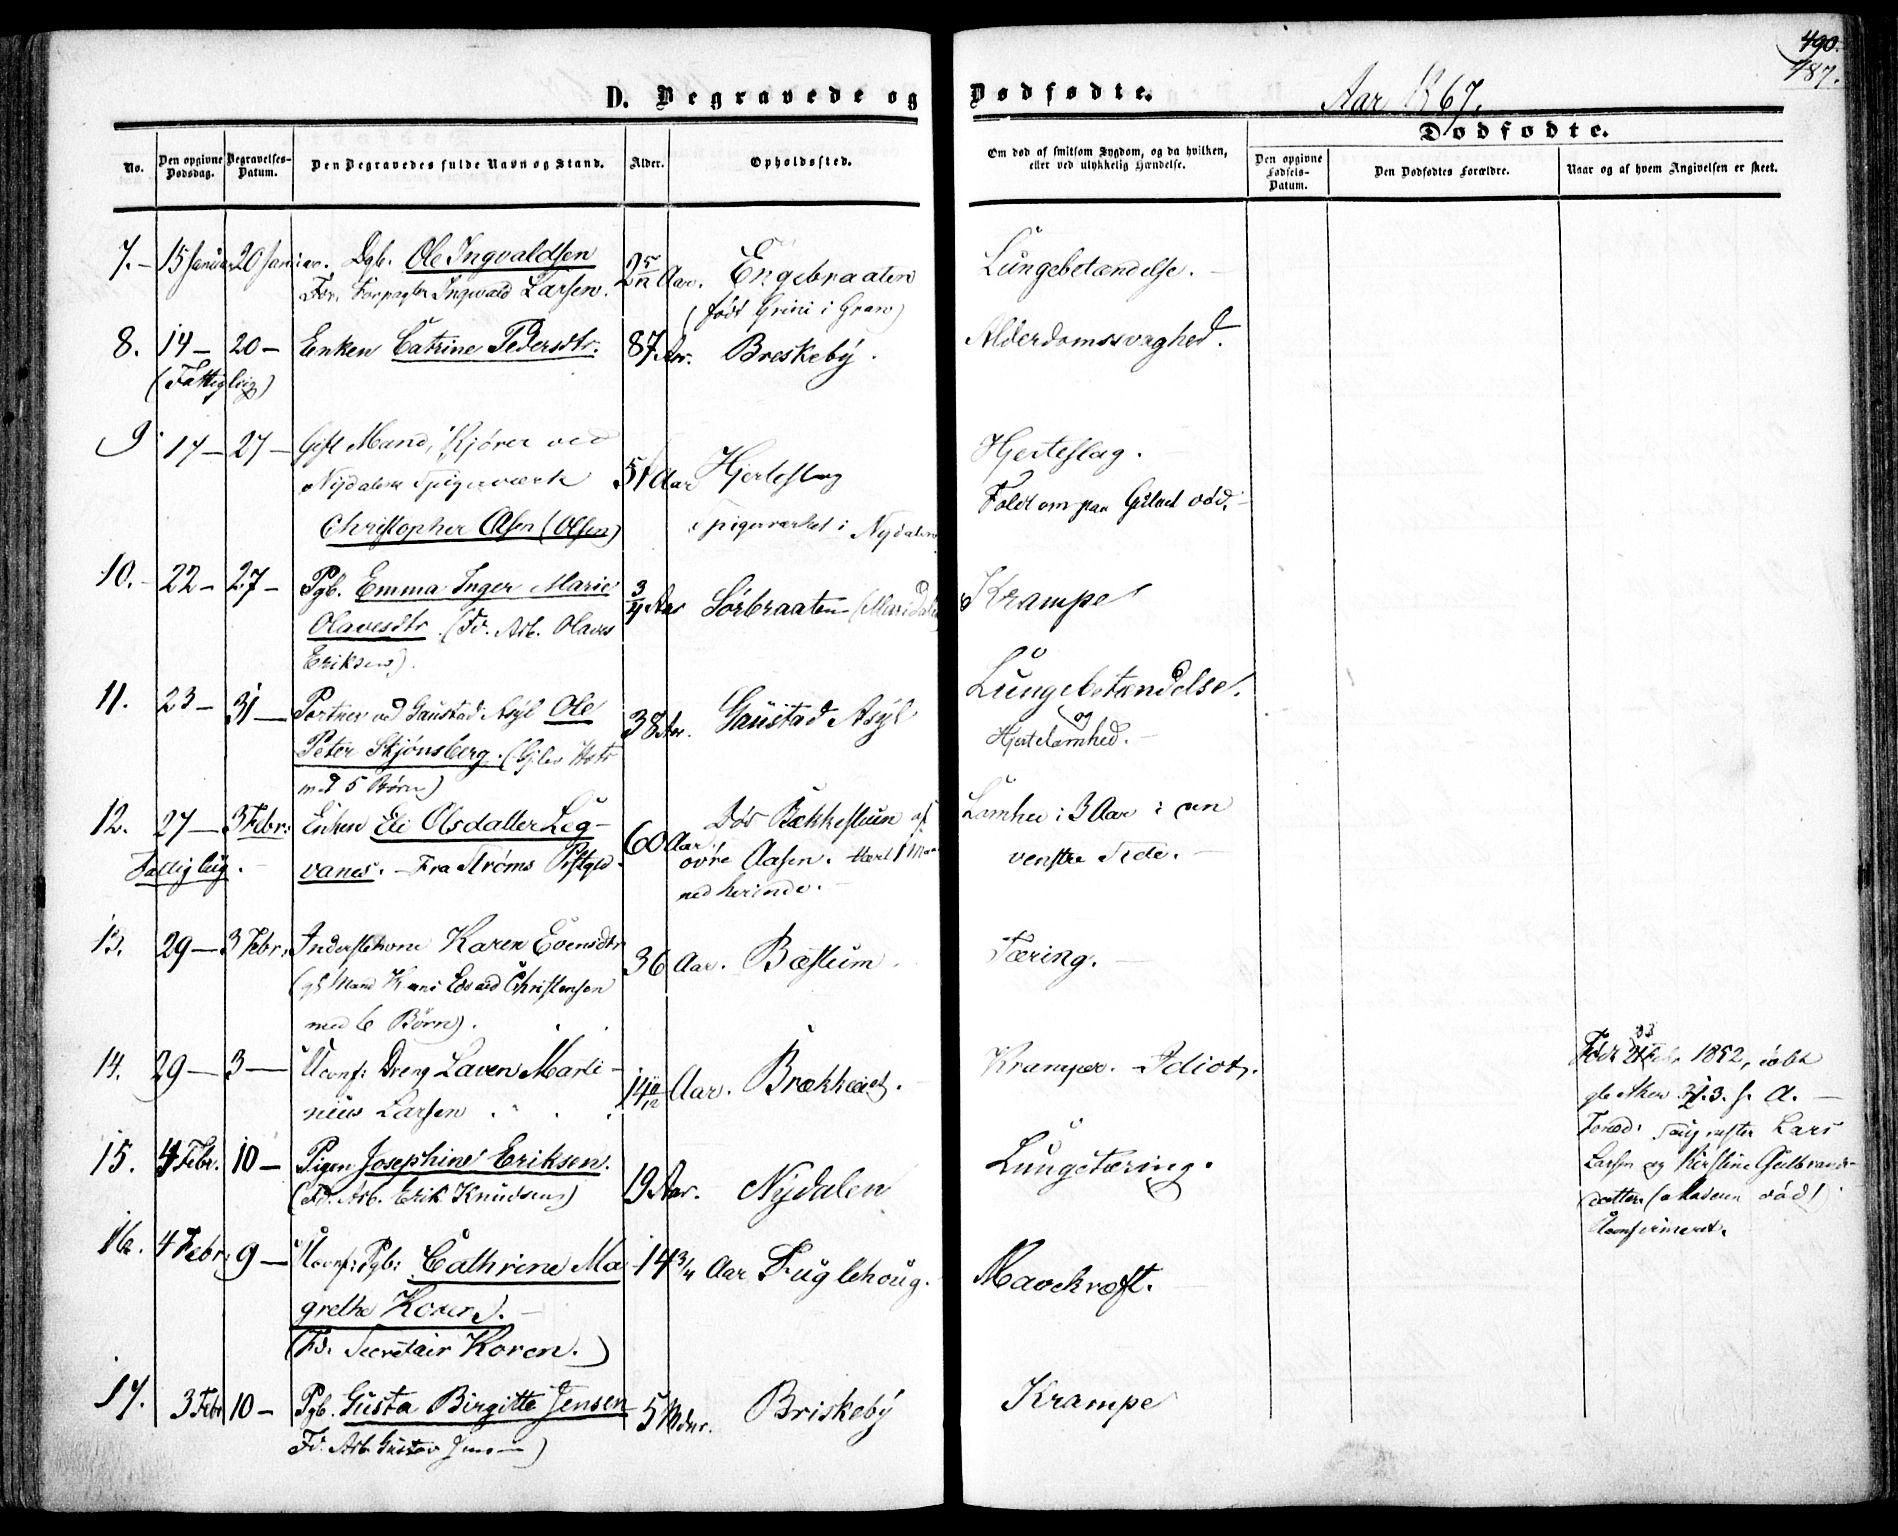 490.
487.
D. Begravede og Dødfødte. Aar 1867.
Dødfødte.
No.
Den opgivne Dødsdag.
Begravelses-Datum.
Den Begravedes fulde Navn og Stand.
Alder.
Opholdssted.
Om død af smitsom Sygdom, og da hvilken, eller ved ulykkelig Hændelse.
Den opgivne Fødsels-Datum.
Den Dødfødtes Forældre.
Naar og af hvem Angivelsen er skeet.
7. 15 Januar 20 Januar. Dgb. Ole Ingvaldsen 2 5/12 Aar. Engebraaten Lungebetændelse.
For. Forpagter Ingvald Larsen. (født Grini i Gran)
8. 14 – 20 – Enken Catrine Pedersdtr. 87 Aar. Breskeby. Alderdomssvaghed.
(Fattiglig)
9. 17 – 27 – Gift Mand, Kjører ved Hjerteslag.
Nydalens Spigerværk 51 Aar Hjerteslag
Christopher Olsen (Olsen) Spigerverket i Nydalen Faldt om paa Gulvet død.
10. 22 – 27 – Pgb. Emma Inger Marie 3/4 Aar Sörbraaten (Maridalen) Krampe
Olavesdtr. (Fd. Arb. Olaves
Eriksen).
11. 23 – 31 – Portner ved Gaustad Asyl Ole 38 Aar. Gaustad Asyl Lungebetændelse.
Peter Skjönsberg. og Hjertelamhed.
med 5 Børn)
12. 27 – 3 Febr: Enken Eli Olsdatter Leg- 60 Aar
Fattiglig. vanes. – Fra Strøms Østre Aasen. Lamhed i 3 Aar i den
venstre Side.
13. 29 – 3 Febr. Inderstekone Karen Evensdtr 36 Aar. Bæstum. Tæring.
(gl Mand Hans Edvard Christensen
med 6 Børn).
14. 29 – 3 – Uconf: Dreng Laven Marti- 14 11/12 Aar. Brækkeiet. Kramper. Idiot.
nius Larsen
Født Febr. 1852, døbt
3. s. A.
Foræd: Lars
Larsen og Kirstine Gulbrands-
datter (Moderen död)
Uconfirmeret.
15. 4 Febr. 10 – Pigen Josephine Eriksen. 19 Aar. Nydalen Lungetæring.
(Fd. Arb. Erik Knudsen)
16. 4 Febr. 9 – Uconf: Pgb: Cathrine Ma- 14 3/4 Aar Fuglehoug. Mavekræft.
grethe Koren.
(Fd. Secretair Koren.)
17. 3 Febr 10 – Pgb. Gusta Birgitte Jensen 5 Mdnr. Briskeby Krampe
Fd. Arb. Gustav Jensen)